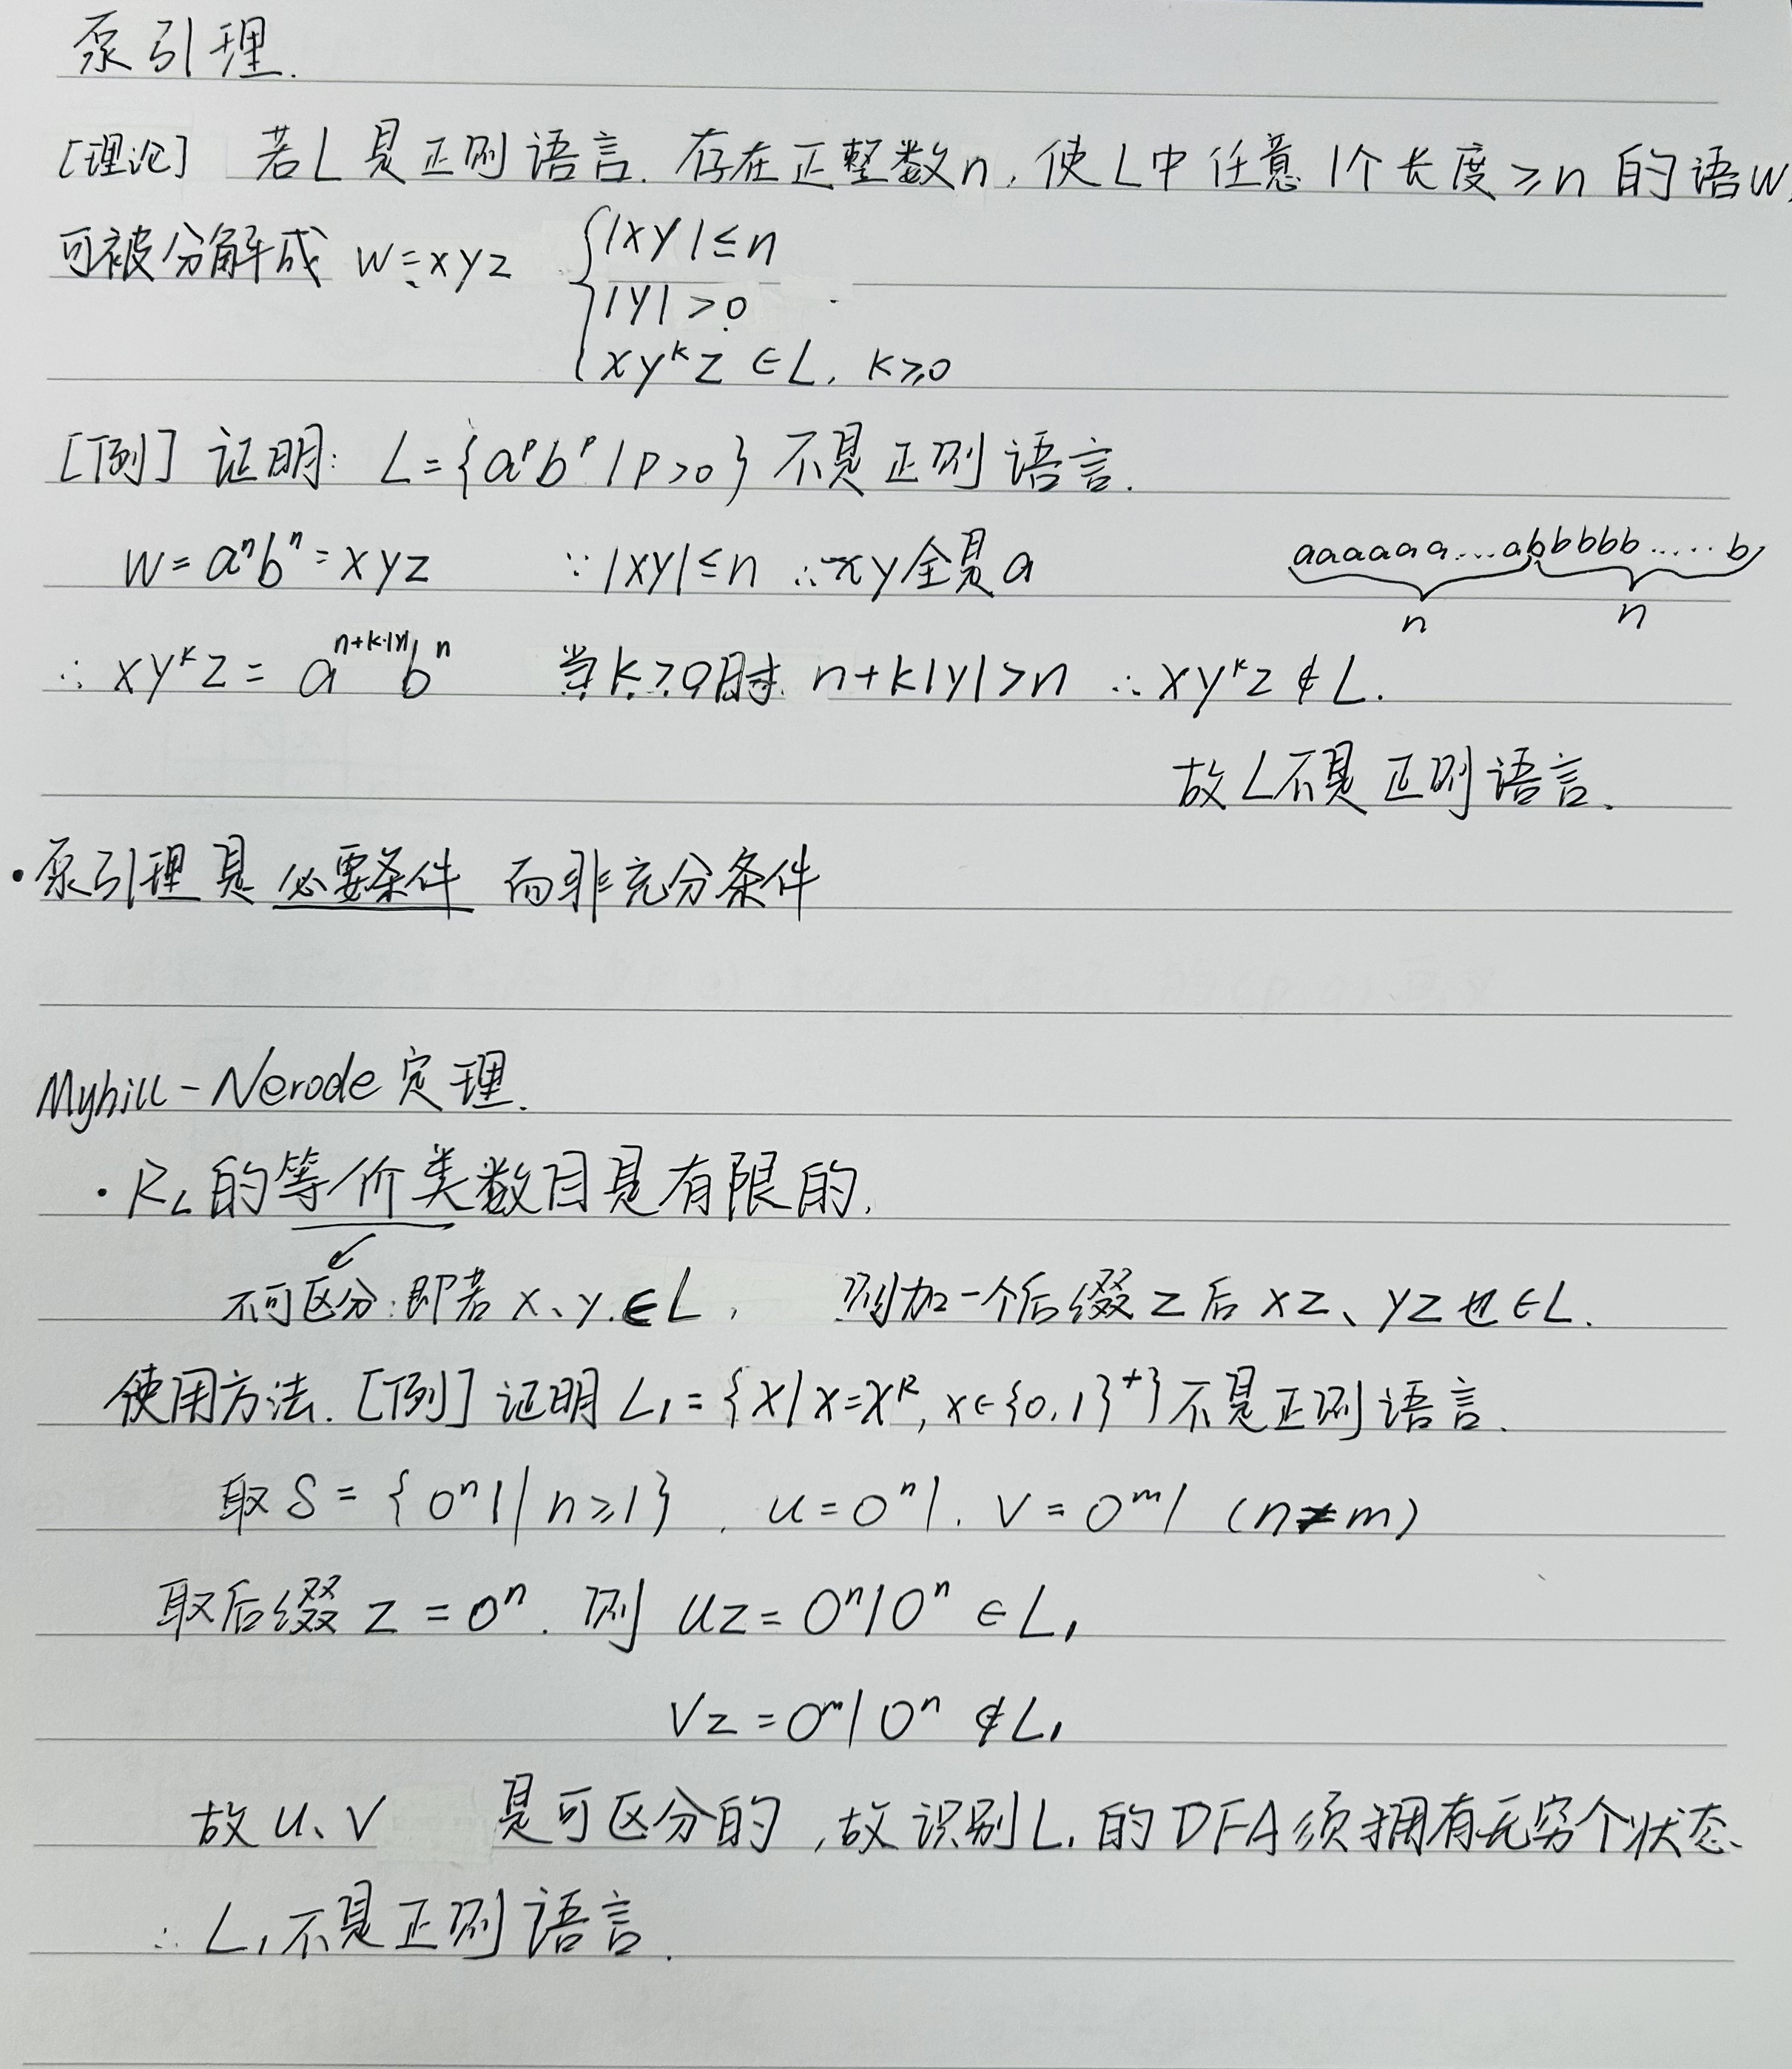 泵引理.
[理论] 若L是正则语言. 存在正整数n, 使L中任意1个长度≥n的语w,
可被分解成 w=xyz { |xy|≤n
|y|>0
xyᵏz ∈L, k≥0
[例] 证明: L={aᵖbᵖ|p>0} 不是正则语言.
w=aⁿbⁿ=xyz ∵|xy|≤n ∴xy全是a aaaaaaa...abbbbbb.....b
n n
∴ xyᵏz = a^{n+k·|y|}bⁿ 当k>0时. n+k|y|>n ∴xyᵏz∉L.
故L不是正则语言.
·泵引理是必要条件 而非充分条件
Myhill-Nerode定理.
·R_L的等价类数目是有限的,
不可区分:即若x、y∈L, 则加一个后缀z后xz、yz也∈L.
使用方法. [例] 证明L₁={x|x=xᴿ, x∈{0,1}⁺}不是正则语言.
取S={0ⁿ1|n≥1}, u=0ⁿ1. v=0ᵐ1 (n≠m)
取后缀z=0ⁿ. 则 uz=0ⁿ10ⁿ∈L₁
vz=0ᵐ10ⁿ∉L₁
故u、v 是可区分的,故识别L₁的DFA须拥有无穷个状态
∴ L₁不是正则语言.